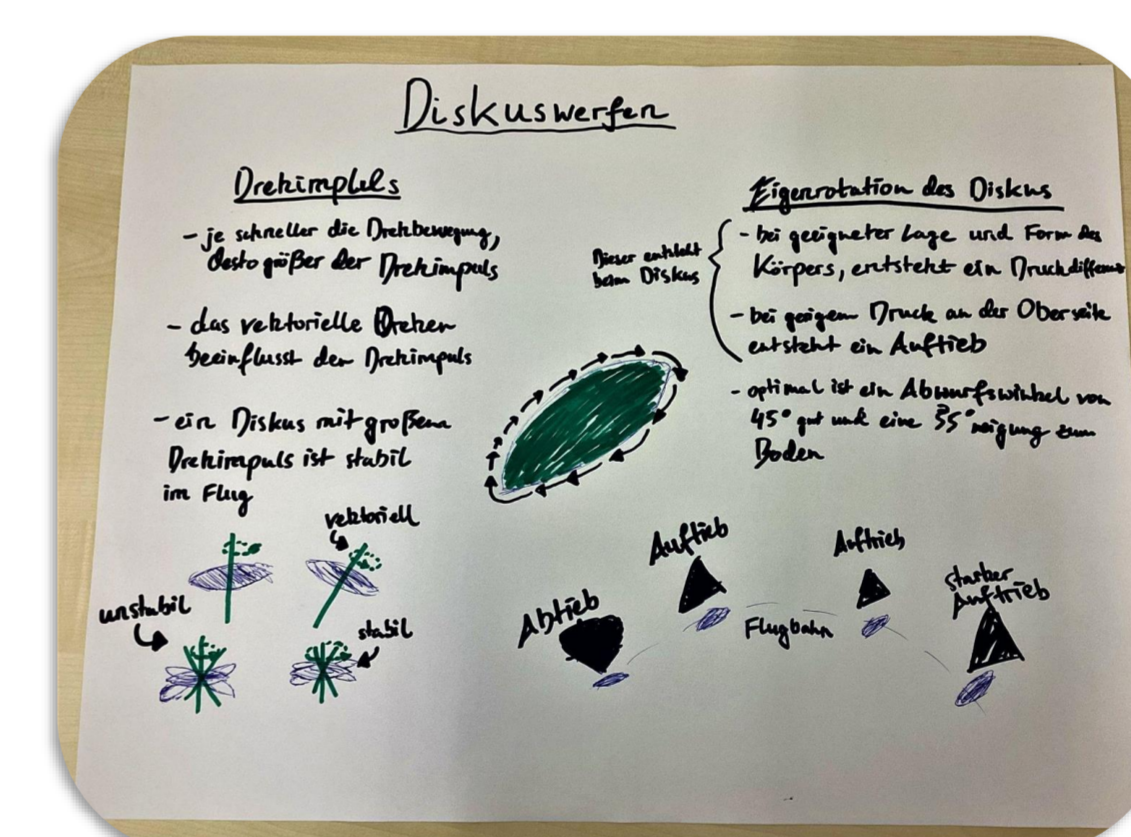 Diskuswerfen
Drehimplus
- je schneller die Drehbewegung,
desto größer der Drehimpuls
- das vektorielle Drehen
beeinflusst den Drehimpuls
- ein Diskus mit großem
Drehimpuls ist stabil
im Flug
vektoriell
unstabil
stabil
Eigenrotation des Diskus
Dieser entsteht
beim Diskus
- bei geeigneter Lage und Form des
Körpers, entsteht ein Druckdifferenz
- bei Druck an der Oberseite
entsteht ein Auftieb
- optimal ist ein Abwurfswinkel von
45° gut und eine 35° neigung zum
Boden
Abtieb
Auftieb
Flugbahn
Auftrieb
starker
Auftrieb